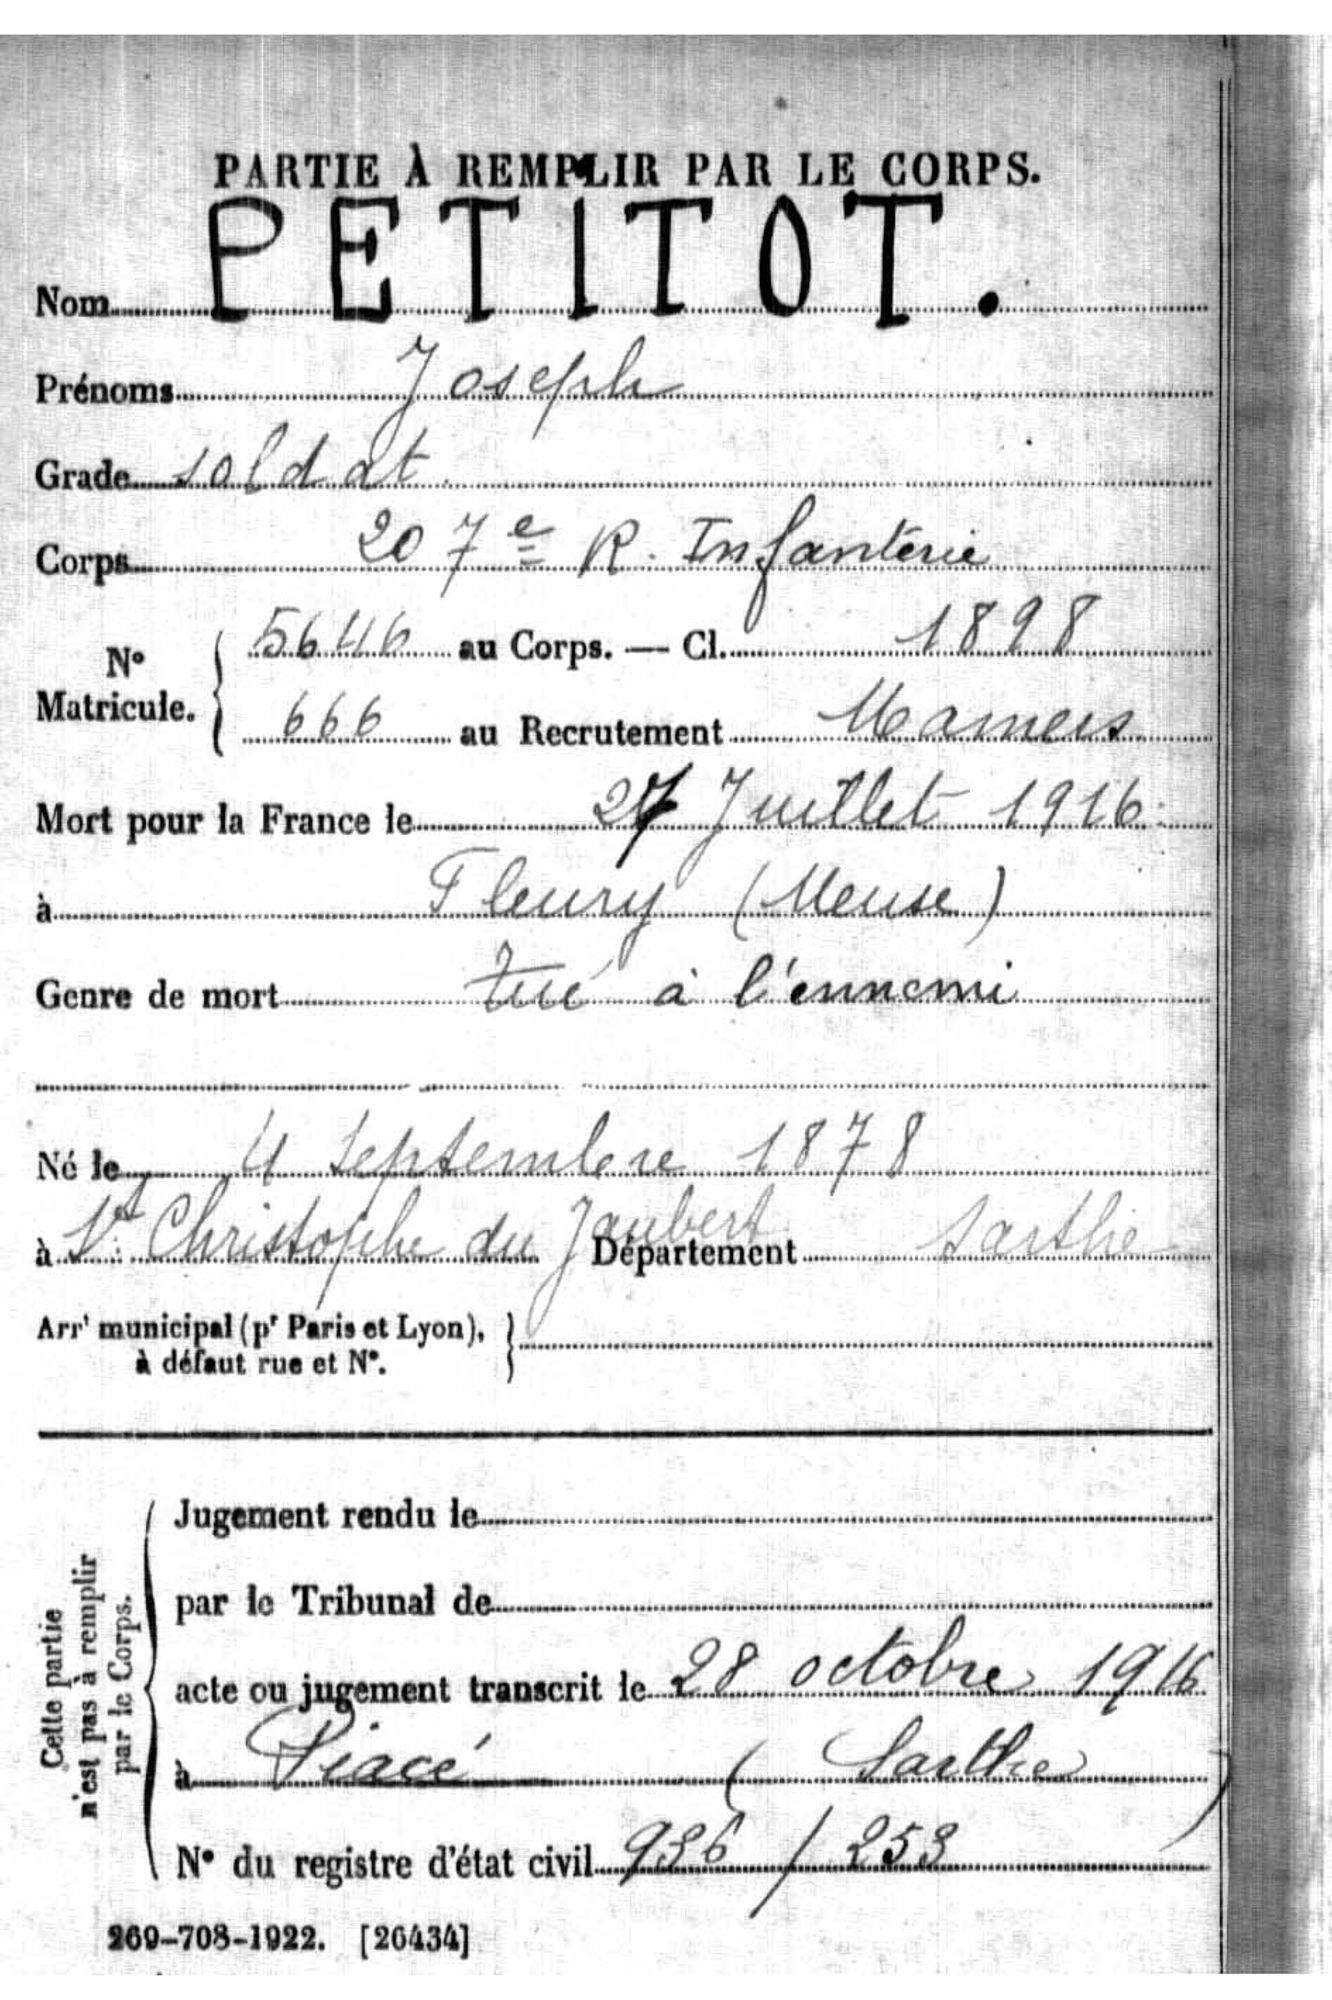 PARTIE À REMPLIR PAR LE CORPS.
Nom PETITOT.
Prénoms Joseph
Grade soldat
Corps 207e R. Infanterie
N° Matricule. { 5646 au Corps. — Cl. 1898
666 au Recrutement Mamers
Mort pour la France le 27 Juillet 1916
à Fleury (Meuse)
Genre de mort tué à l'ennemi
Né le 4 Septembre 1878
à St Christophe du Jaubert Département Sarthe
Arrt municipal (pr Paris et Lyon), }
à défaut rue et N°.
Cette partie
n'est pas à remplir
par le Corps.
Jugement rendu le
par le Tribunal de
acte ou jugement transcrit le 28 octobre 1916
à Piacé (Sarthe)
N° du registre d'état civil 936 / 253
269-708-1922. [26434]